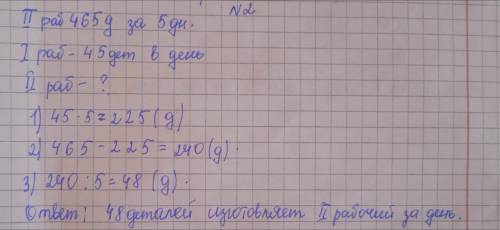 N2
II раб 465 д за 5 дн.
I раб - 45 дет в день
II раб - ?
1) 45 · 5 = 225 (д)
2) 465 - 225 = 240 (д).
3) 240 : 5 = 48 (д).
Ответ: 48 деталей изготовляет II рабочий за день.